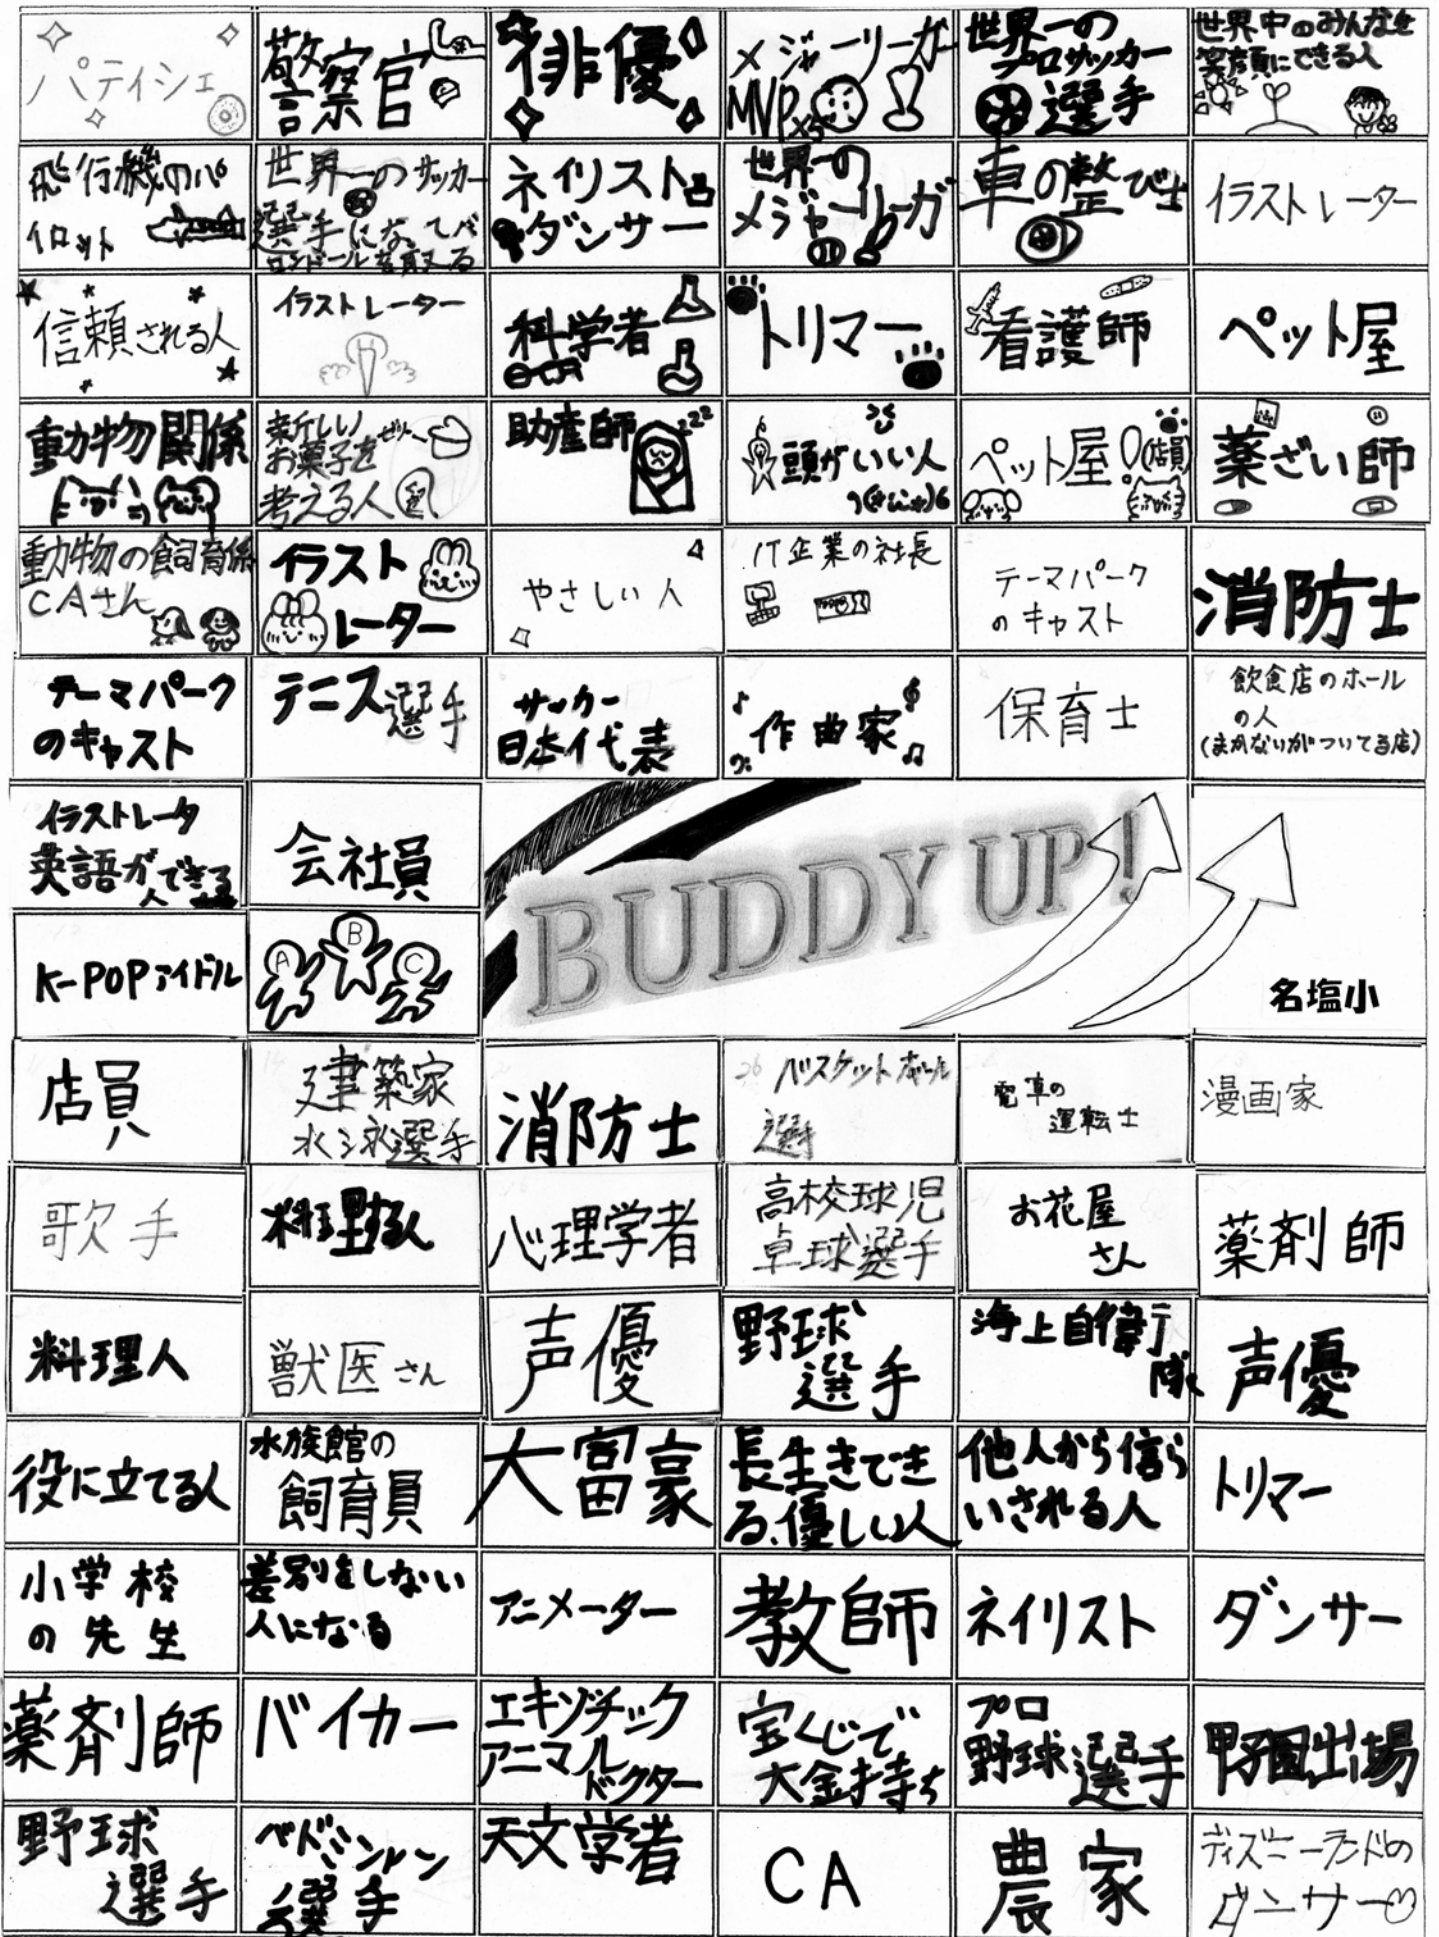 パティシェ
警察官
俳優
メジャーリーガー
MVP x5
世界一の
プロサッカー
選手
世界中のみんなを
笑顔にできる人
飛行機のパ
イロット
世界一のサッカー
選手になってバ
ロンドールを取る
ネイリスト
ダンサー
世界一の
メジャーリーガ
車の整び士
イラストレーター
信頼される人
イラストレーター
科学者
トリマー
看護師
ペット屋
動物関係
新しい
お菓子を
考える人
ゼリー
助産師
zzz
頭がいい人
ペット屋!(店員)
薬ざい師
動物の飼育係
CAさん
イラスト
レーター
やさしい人
IT企業の社長
テーマパーク
のキャスト
消防士
テーマパーク
のキャスト
テニス選手
サッカー
日本代表
作曲家
保育士
飲食店のホール
の人
(まかないがついてる店)
イラストレータ
英語ができる
人
会社員
BUDDY UP!
K-POPアイドル
A
B
C
名塩小
店員
建築家
水泳選手
消防士
バスケットボール
選手
電車の
運転士
漫画家
歌手
料理する人
心理学者
高校球児
卓球選手
お花屋
さん
薬剤師
料理人
獣医さん
声優
野球
選手
海上自衛
隊
声優
役に立てる人
水族館の
飼育員
大富豪
長生きでき
る、優しい人
他人から信ら
いされる人
トリマー
小学校
の先生
差別をしない
人になる
アニメーター
教師
ネイリスト
ダンサー
薬剤師
バイカー
エキゾチック
アニマル
ドクター
宝くじで
大金持ち
プロ
野球選手
甲子園出場
野球
選手
バドミントン
選手
天文学者
CA
農家
ディズニーランドの
ダンサー